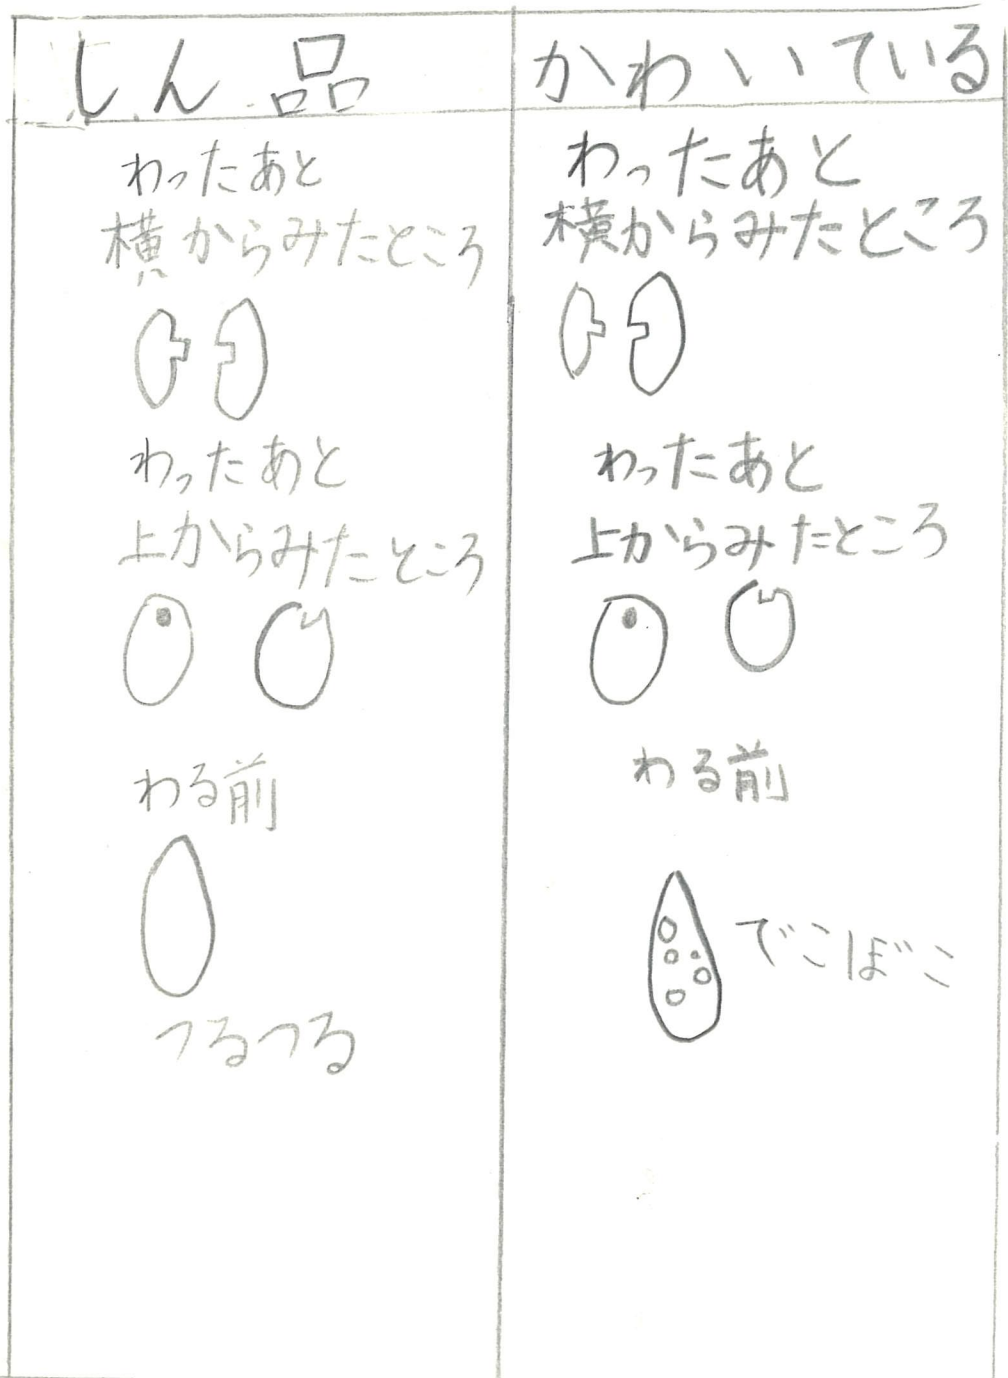 しん品
わったあと
横からみたところ
わったあと
上からみたところ
わる前
つるつる
かわいている
わったあと
横からみたところ
わったあと
上からみたところ
わる前
でこぼこ